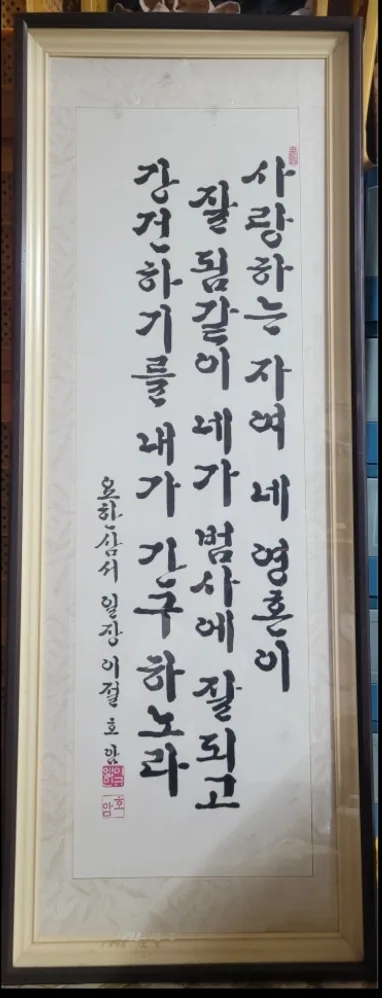 사랑하는 자여 네 영혼이
잘 됨같이 네가 범사에 잘되고
강건하기를 내가 간구 하노라
요한삼서 일장 이절 호암
호암